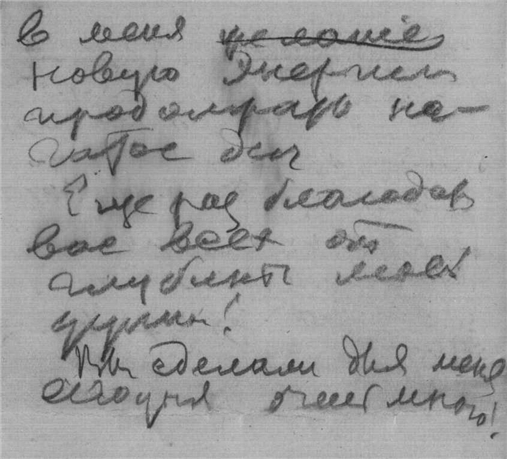 в меня желание
новую энергию
продолжать на-
чатое дел
Еще раз благодар
вас всех от
глубины моей
души!
Вы сделали для меня
сегодня очень много!